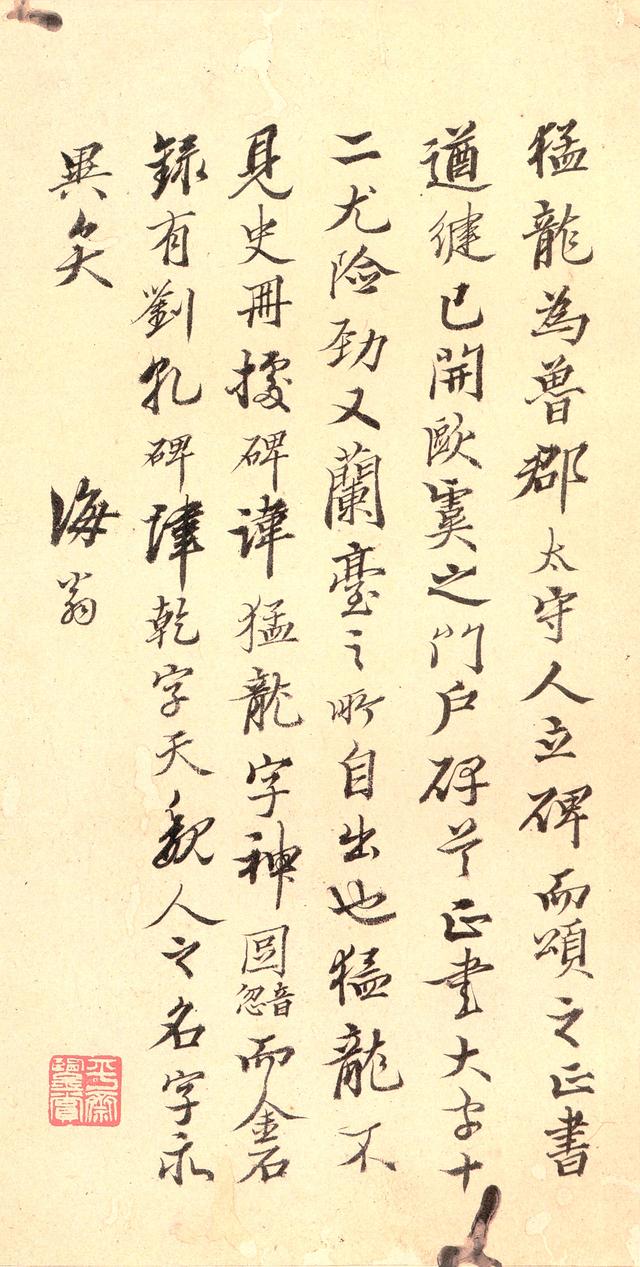 猛龍為魯郡太守人立碑而頌之正書
遒健已開歐虞之門戶碑首正書大字十
二尤險勁又蘭臺之所自出也猛龍不
見史冊據碑諱猛龍字神𡇈音忽而金石
錄有劉碑諱乾字天魏人之名字亦
異矣
海翁
平齋鑒賞